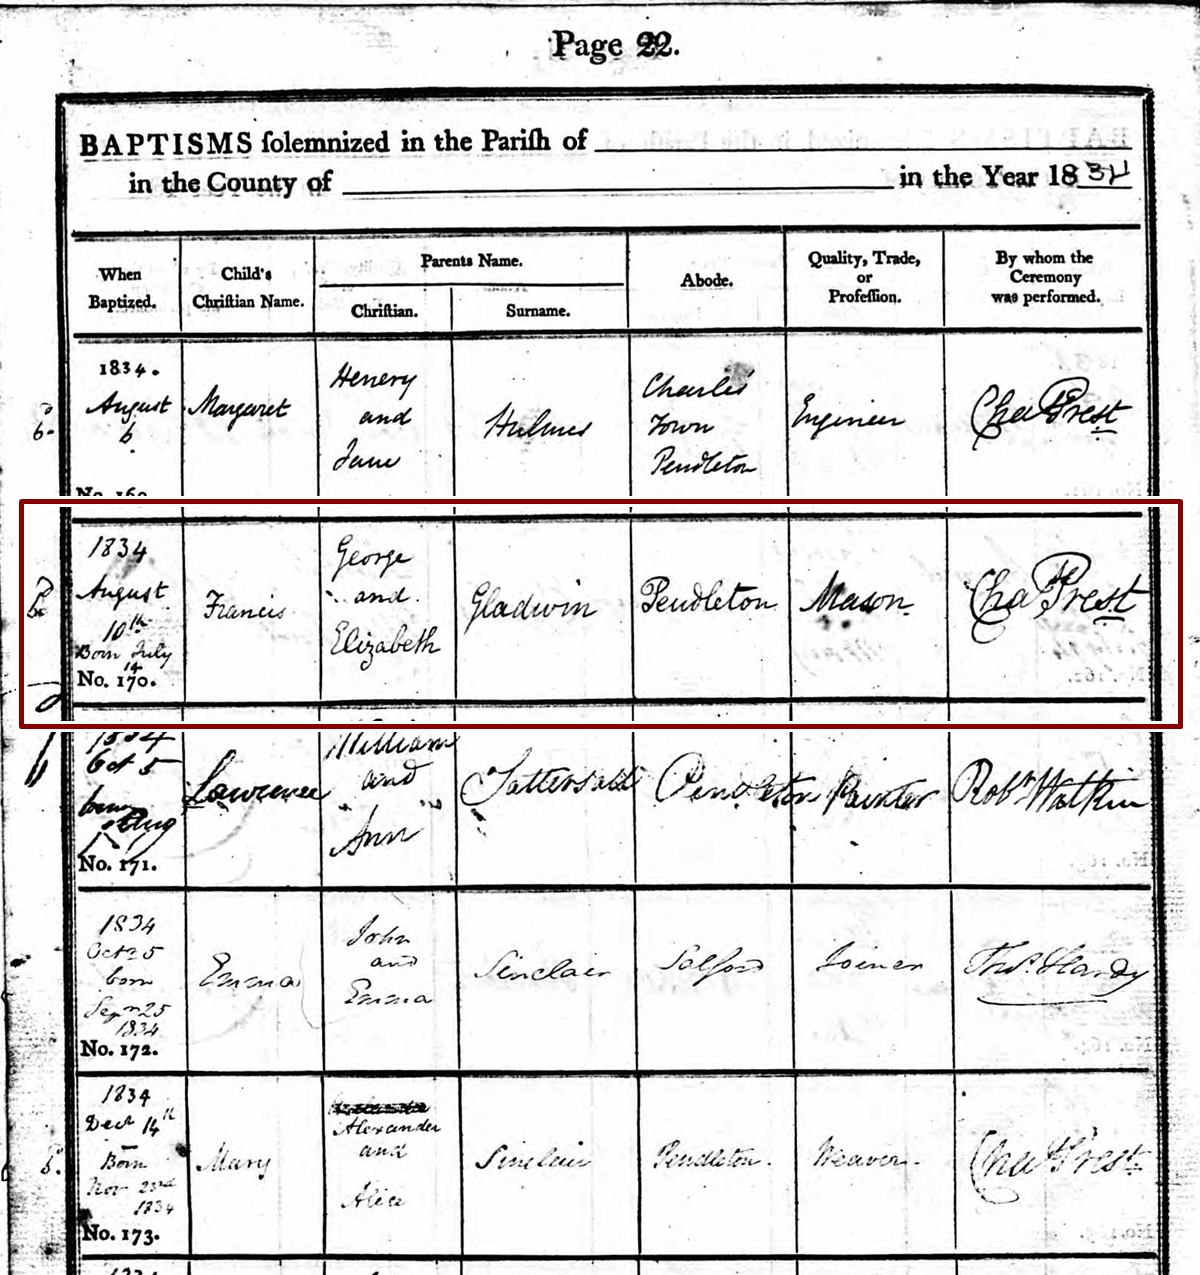 Page 22.
BAPTISMS solemnized in the Parish of
in the County of in the Year 1834
When Baptized.
Child's Christian Name.
Parents Name.
Christian.
Surname.
Abode.
Quality, Trade, or Profession.
By whom the Ceremony was performed.
1834.
August
6
No. 169
Margaret
Henery
and
Jane
Hulmes
Charles
Town
Pendleton
Engineer
Chas Prest
1834
August
10th
Born July
14
No. 170.
Francis
George
and
Elizabeth
Gladwin
Pendleton
Mason
Chas Prest
1834
Oct 5
born
Aug
No. 171.
Lawrence
William
and
Ann
Tattersall
Pendleton
Painter
Robt Watkin
1834
Oct 25
born
Sepn 25
1834
No. 172.
Emma
John
and
Emma
Sinclair
Salford
Joiner
Thos. Hardy
1834
Dect 14th
Born
Nov 23rd
1834
No. 173.
Mary
Alexander
and
Alice
Sinclair
Pendleton.
Weaver.
Chas Prest